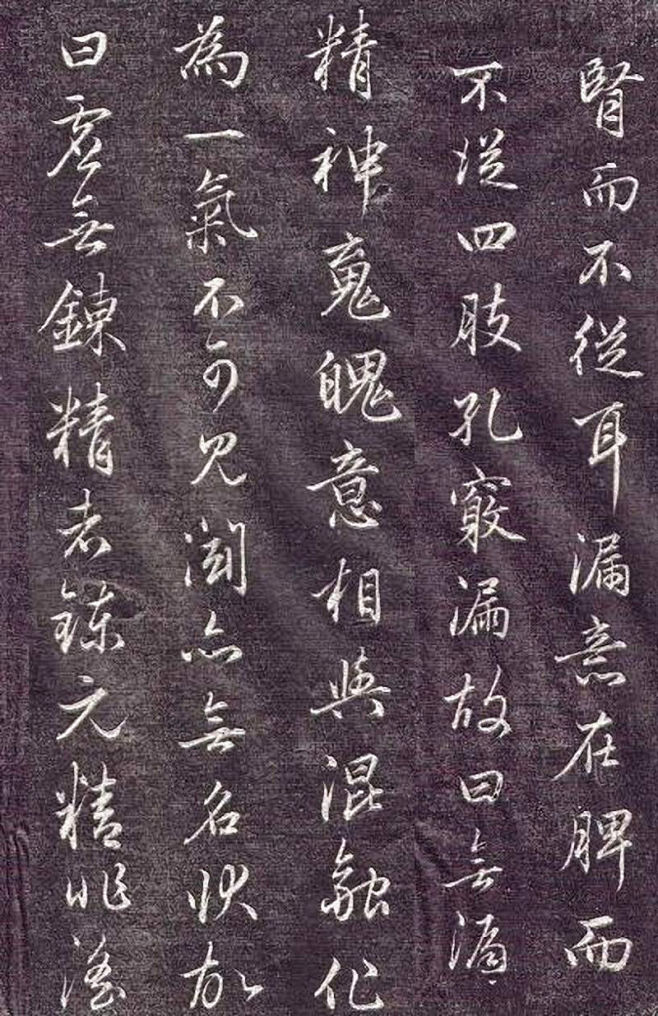 腎而不從耳漏意在脾而
不從四肢孔竅漏故曰無漏
精神䰟魄意相與混融化
為一氣不可見聞亦無名狀故
曰虛無鍊精者鍊元精非淫